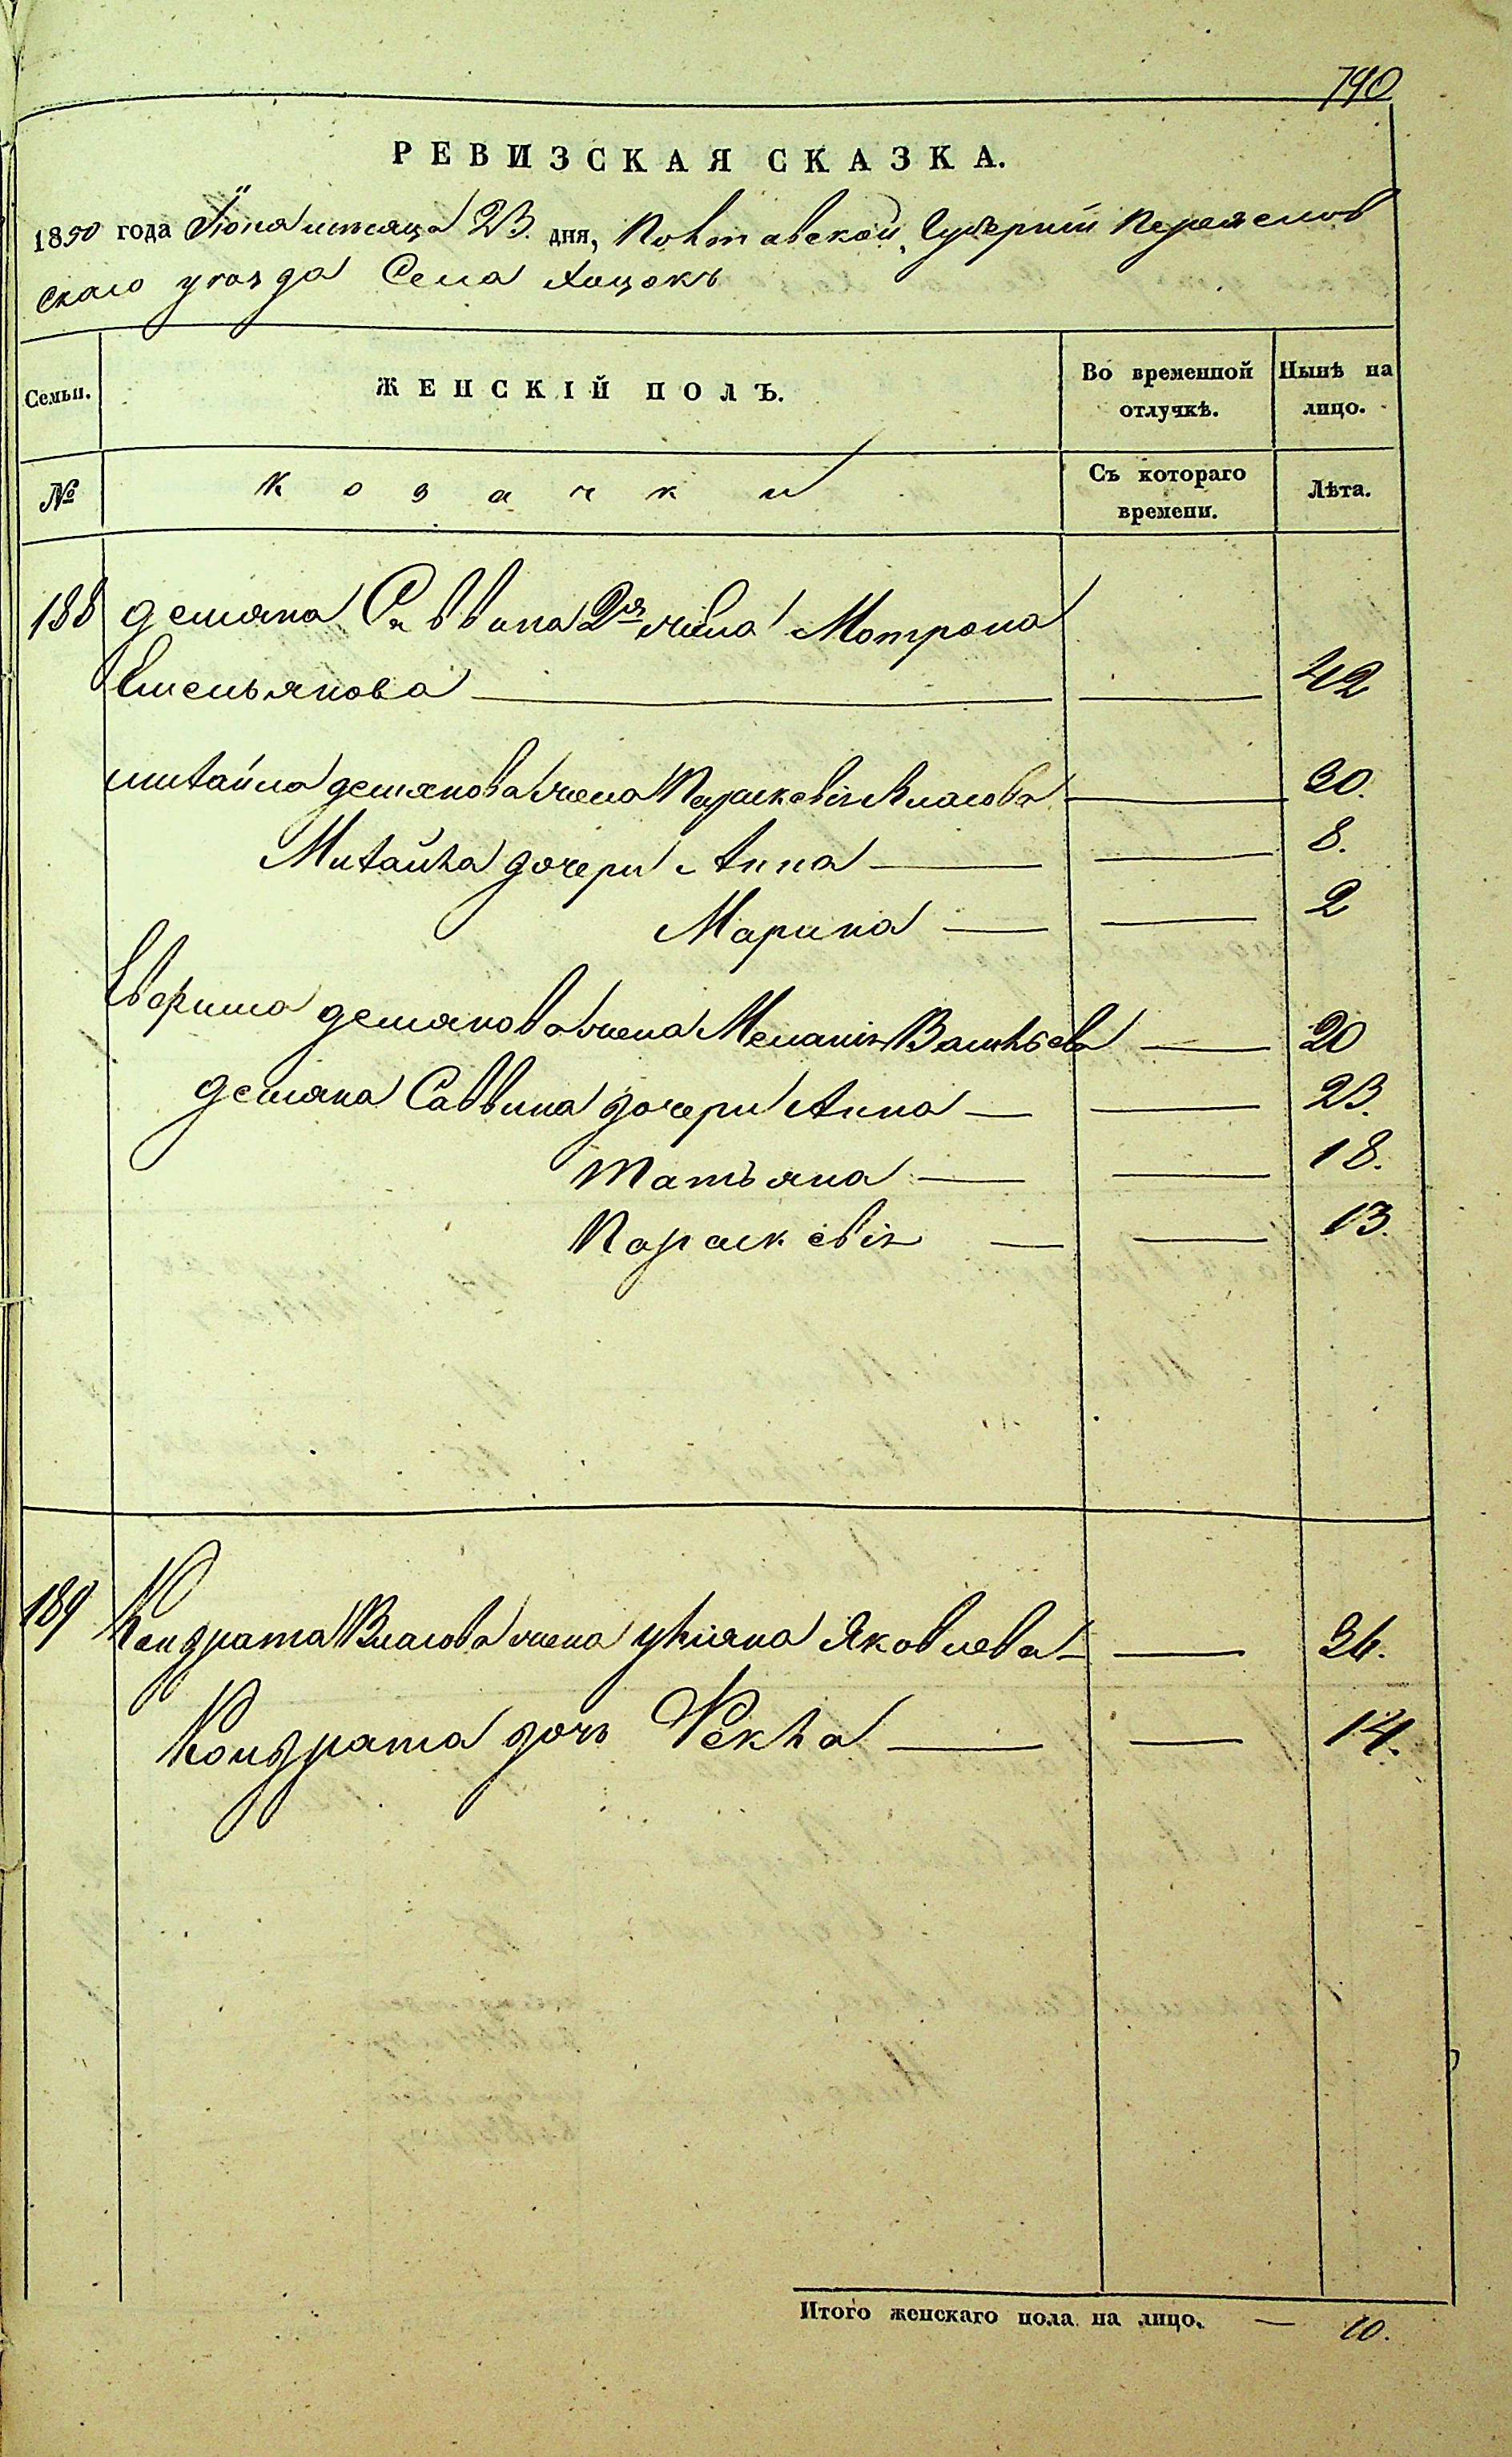 790
РЕВИЗСКАЯ СКАЗКА.
1850 года Іюня месяца 23. дня, Полтавской Губерніи Переяслов
скаго уезда Села Хоцокъ
Семьи. ЖЕНСКІЙ ПОЛЪ. Во временной отлучкѣ. Нынѣ на лицо.
№ Козачки Съ котораго времени. Лѣта.
188 Демяна Саввина 2я жена Мотрона
Емельянова 42
Михайла Демянова жена Параскевія Власова 30.
Михайла дочери Анна 8.
Марина 2
Евфима Демянова жена Меланія Васильева 20
Демяна Саввина дочери Анна 23.
Татьяна 18.
Параскевія 13.
189 Кондрата Власова жена Уліяна Яковлева 36.
Кондрата дочь Фекла 14.
Итого женскаго пола на лицо. — 10.